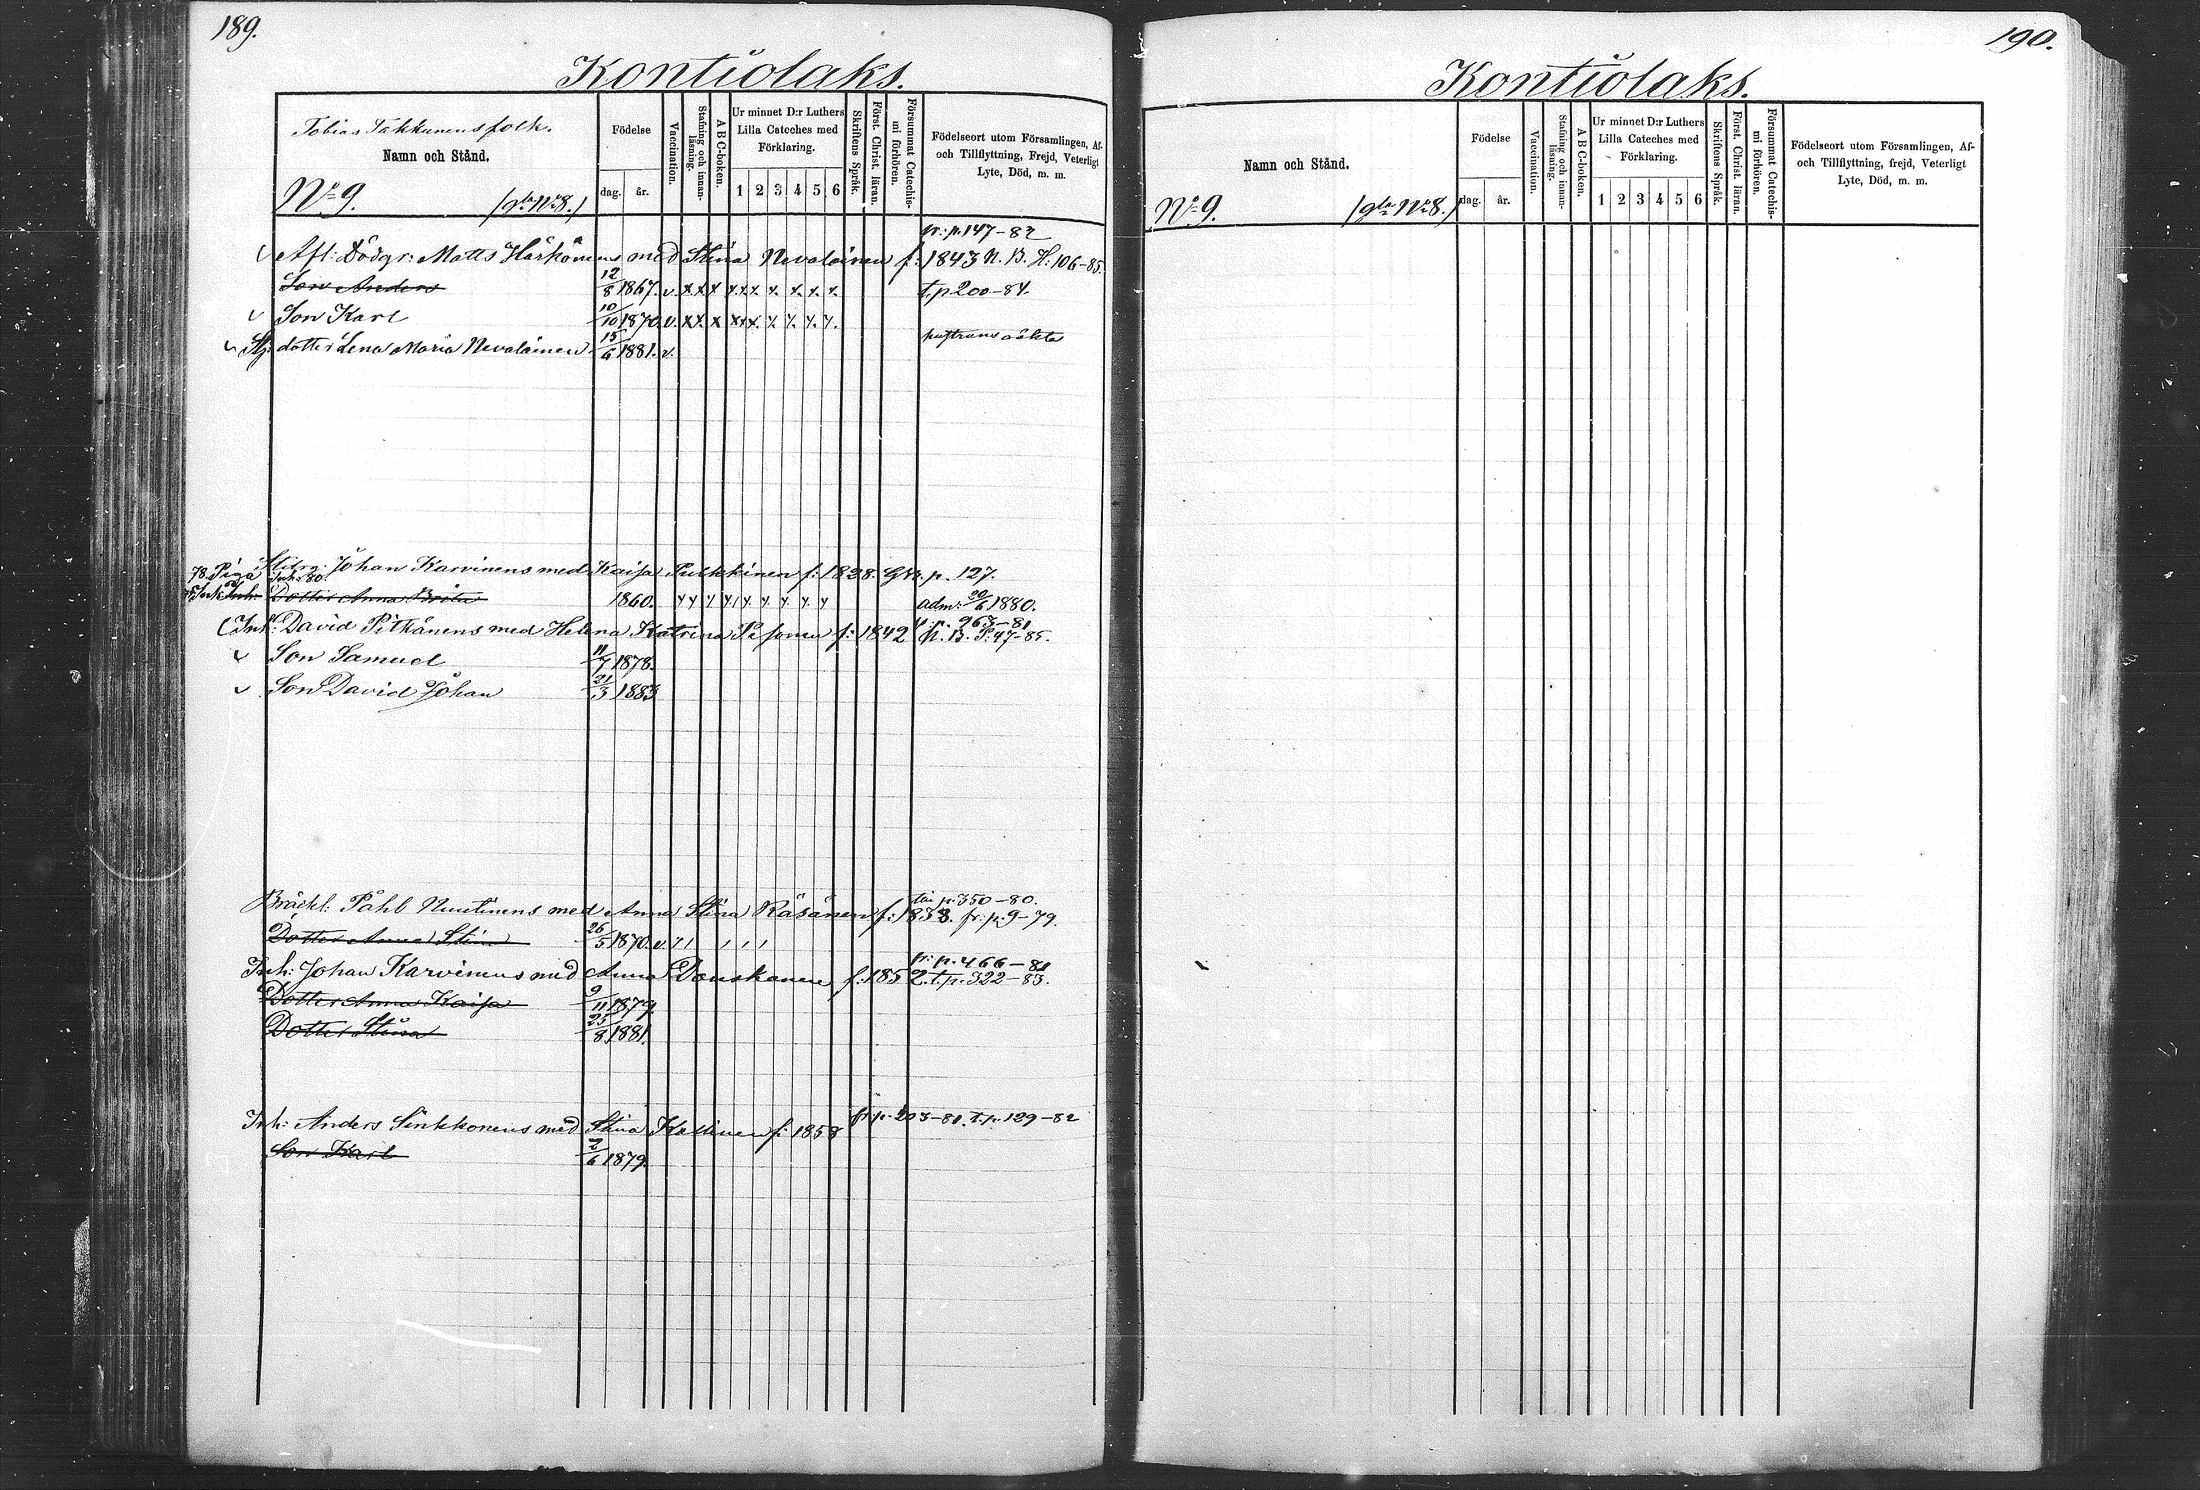 189.
Kontiolaks.
Tobias Takkunens folk.
Namn och Stånd.
No 9. (gla No 8.)
Födelse
dag. år.
Vaccination.
Stafning och innanläsning.
A B C-boken.
Ur minnet D:r Luthers
Lilla Cateches med
Förklaring.
1 2 3 4 5 6
Skriftens Språk.
Först. Christ. läran.
Försummat Catechismi förhören.
Födelseort utom Församlingen, Af-
och Tillflyttning, Frejd, Veterligt
Lyte, Död, m. m.
fr: p. 147-82
Afl: Lödgr: Matts Härkönens med Stina Nevalainen f: 1843 N. B. H: 106-85.
Son Anders 12/8 1867. v. x x x x x x x. x. x. x. t. p. 200-84.
v Son Karl 10/10 1870. v. x x. x x x x. x. x. x. x.
v dotter Lena Maria Nevalainen 15/6 1881. v. oäkta
Johan Karvinens med Kaisa Pulkkinen f: 1828. p. 127.
78. Piga Inh: 80.
Dotter Anna Brita 1860. adm: 20/6 1880.
fr. p. 263-81
Inh: David Pitkänens med Helena Katrina Piironen f: 1842 N. B. P: 47-85.
v Son Samuel 11/7 1878.
v Son David Johan 21/3 1883
till p. 350-80.
Bräckl: Påhl Nuutinens med Anna Stina Räsänen f: 1833. fr: p. 9-79.
Dotter Anna Stina 26/5 1870. v.
fr: p. 466-81
Inh: Johan Karvinens med Anna Danskanen f: 1852. t. p. 322-83.
Dotter Anna Kaisa 9/11 1879.
Dotter Stina 25/8 1881.
fr: p. 203-81. t. p. 129-82
Inh: Anders Sinkkonens med Stina Kettunen f: 1858
Son Karl 2/6 1879.
190.
Kontiolaks.
Namn och Stånd.
No 9. (gla No 8.)
Födelse
dag. år.
Vaccination.
Stafning och innanläsning.
A B C-boken.
Ur minnet D:r Luthers
Lilla Cateches med
Förklaring.
1 2 3 4 5 6
Skriftens Språk.
Först. Christ. läran.
Försummat Catechismi förhören.
Födelseort utom Församlingen, Af-
och Tillflyttning, frejd, Veterligt
Lyte, Död, m. m.